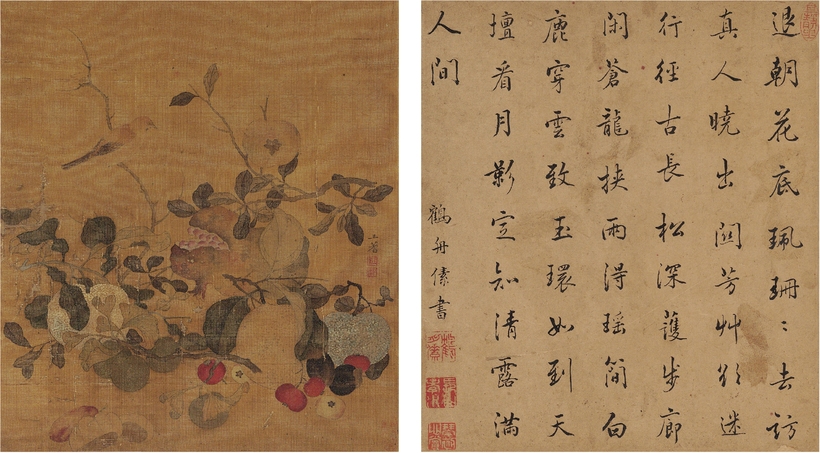 退朝花底珮珊〻去訪
真人曉出關芳艸欲迷
行徑古長松深護步廊
閑蒼龍挾雨得瑤簡白
鹿穿雲致玉環如到天
壇看月影定知清露滿
人間
鶴舟傃書